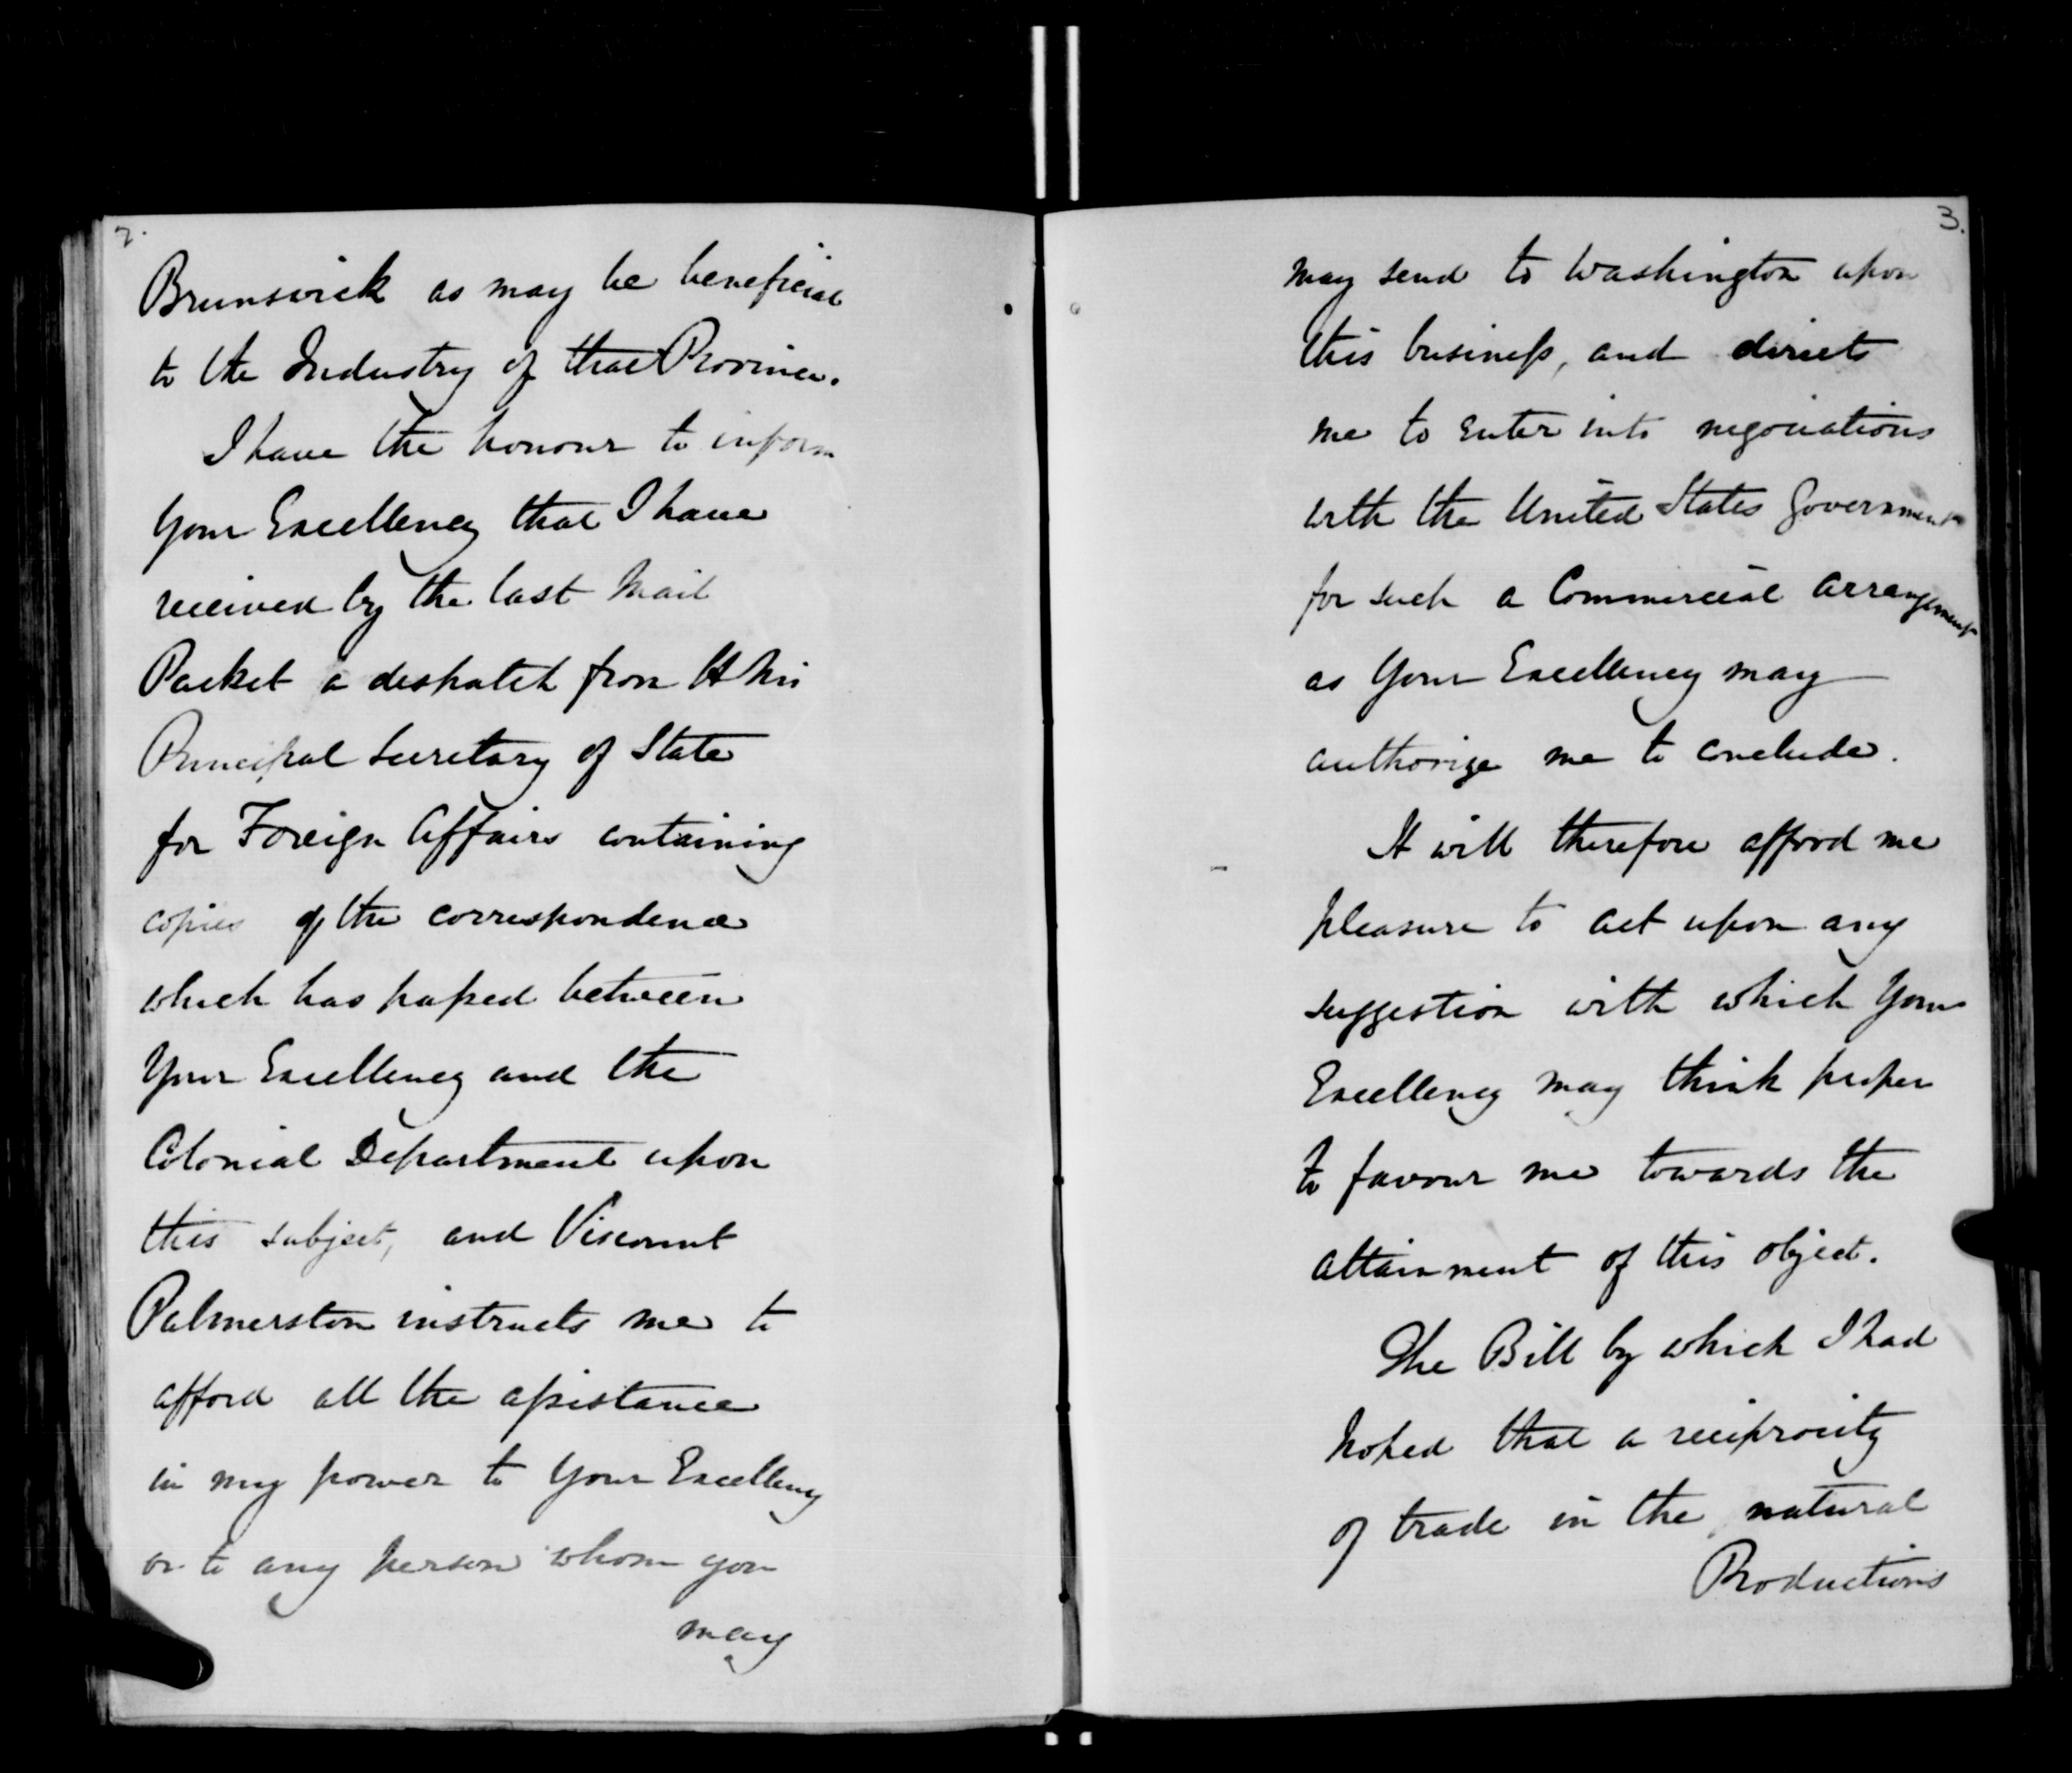 2.
Brunswick as may be beneficial
to the Industry of that Province.
I have the honour to inform
Your Excellency that I have
received by the last Mail
Packet a despatch from H Ms
Principal Secretary of State
for Foreign Affairs containing
copies of the correspondence
which has passed between
Your Excellency and the
Colonial Department upon
this subject, and Viscount
Palmerston instructs me to
afford all the assistance
in my power to Your Excellency
or to any person whom you
may
3.
may send to Washington upon
this business, and directs
me to enter into negociations
with the United States Government
for such a Commercial arrangement
as Your Excellency may
authorize me to conclude.
It will therefore afford me
pleasure to act upon any
suggestion with which Your
Excellency may think proper
to favour me towards the
attainment of this object.
The Bill by which I had
hoped that a reciprocity
of trade in the natural
Productions